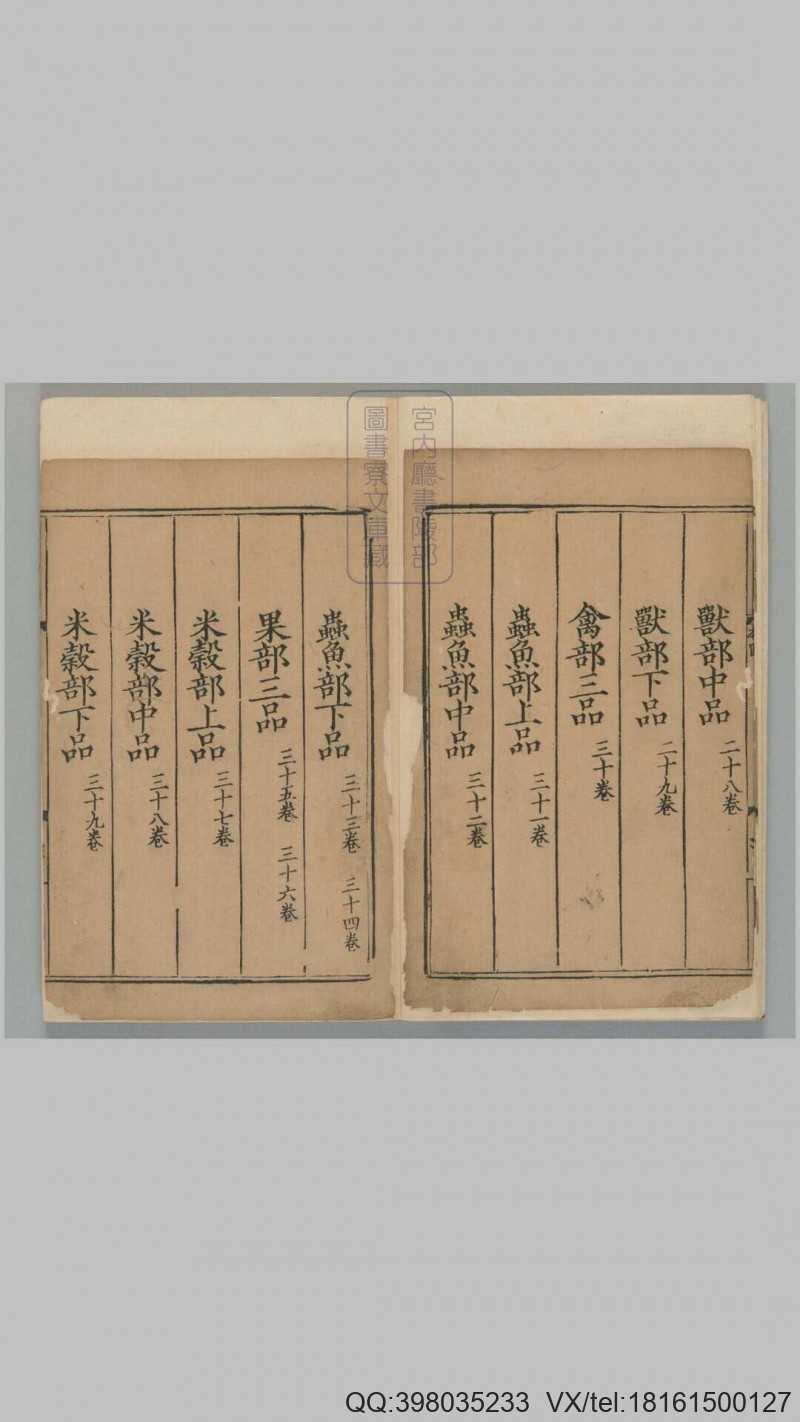 獸部中品 二十八卷
獸部下品 二十九卷
禽部三品 三十卷
蟲魚部上品 三十一卷
蟲魚部中品 三十二卷
蟲魚部下品 三十三卷 三十四卷
果部三品 三十五卷 三十六卷
米穀部上品 三十七卷
米穀部中品 三十八卷
米穀部下品 三十九卷
宮內廳書陵部
圖書寮文庫藏
QQ:398035233 VX/tel:18161500127